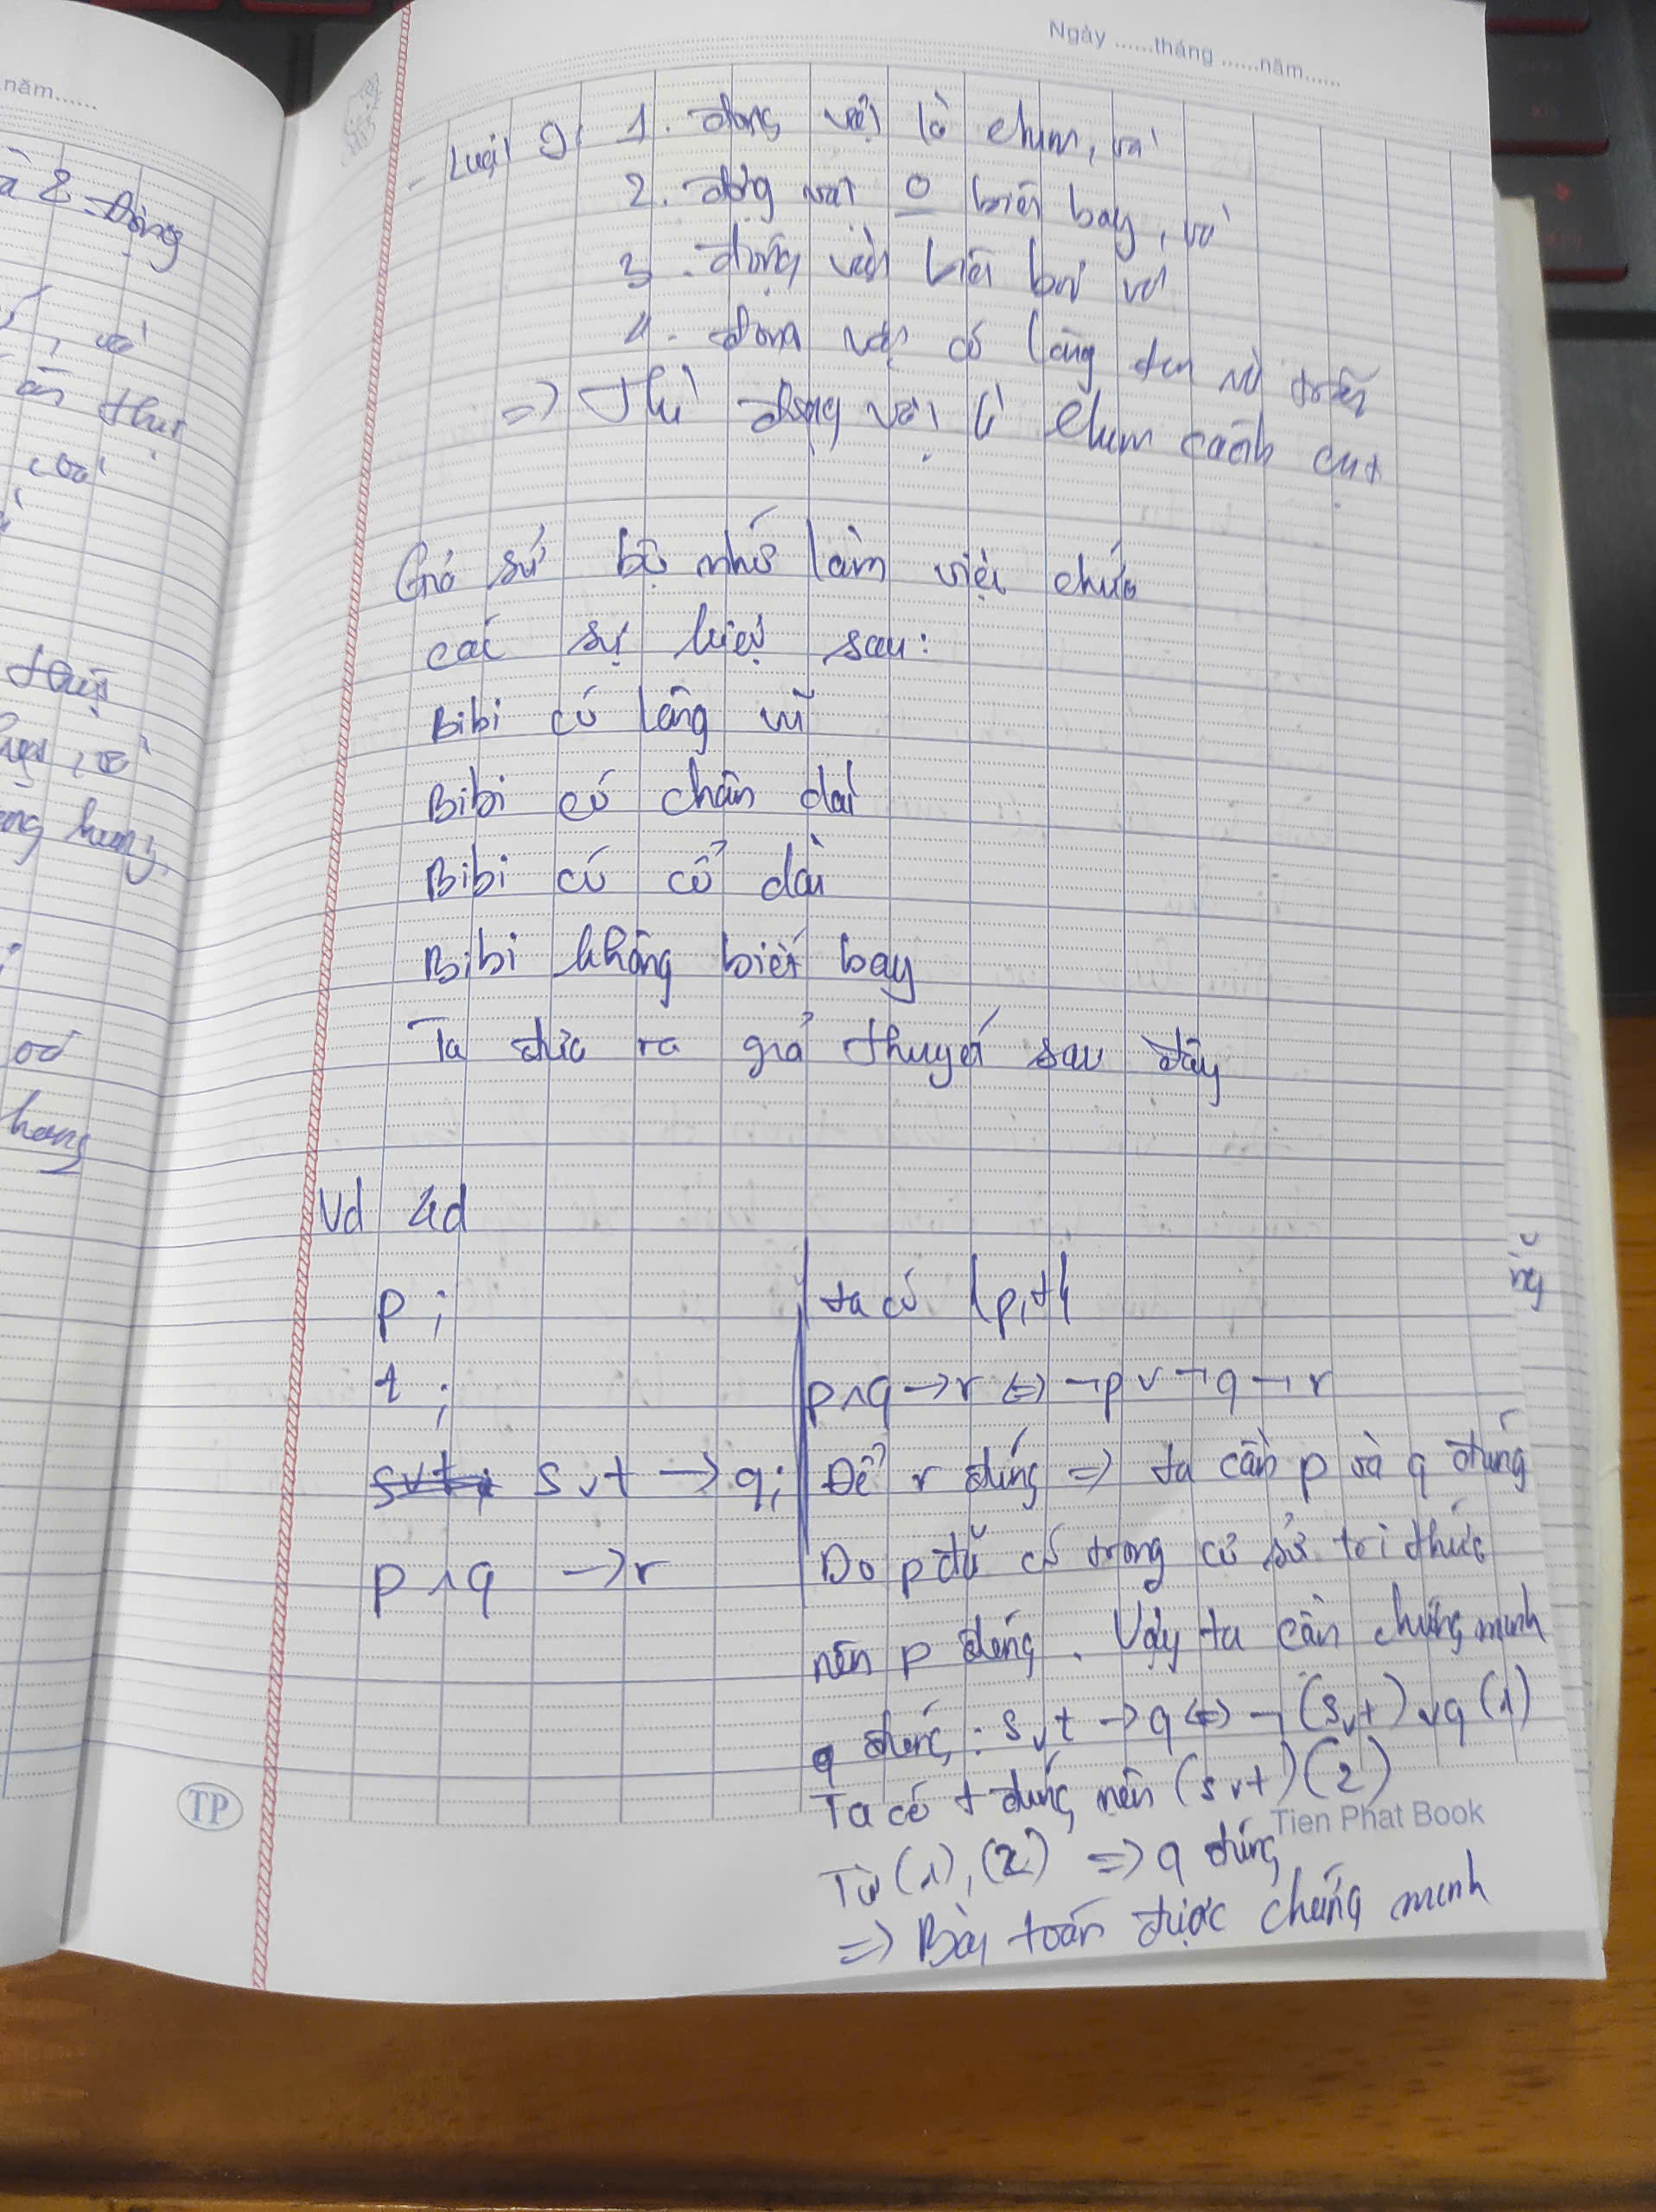 năm......
Ngày ......tháng ......năm......
à 2 động
, và
thì
thuỷ
, và
ng hương
hang
- Luật 9: 1. động vật là chim, và
2. động vật O biết bay, và
3. động vật biết bơi và
4. động vật có lông đen và trắng
=> Thì động vật là chim cánh cụt
Giả sử bộ nhớ làm việc chứa
các sự kiện sau:
Bibi có lông vũ
Bibi có chân dài
Bibi có cổ dài
Bibi không biết bay
Ta đưa ra giả thuyết sau đây
Vd 4d
p ;
t ;
svt; s v t → q;
p ∧ q → r
ta có {p,t}
p∧q → r <=> ¬p v ¬q ¬ r
Để r đúng => ta cần p và q đúng
Do p đã có trong cơ sở tri thức
nên p đúng. Vậy ta cần chứng minh
q đúng: s v t → q <=> ¬(s v t) v q (1)
Ta có t đúng nên (s v t) (2)
Từ (1), (2) => q đúng
=> Bài toán được chứng minh
TP
Tien Phat Book